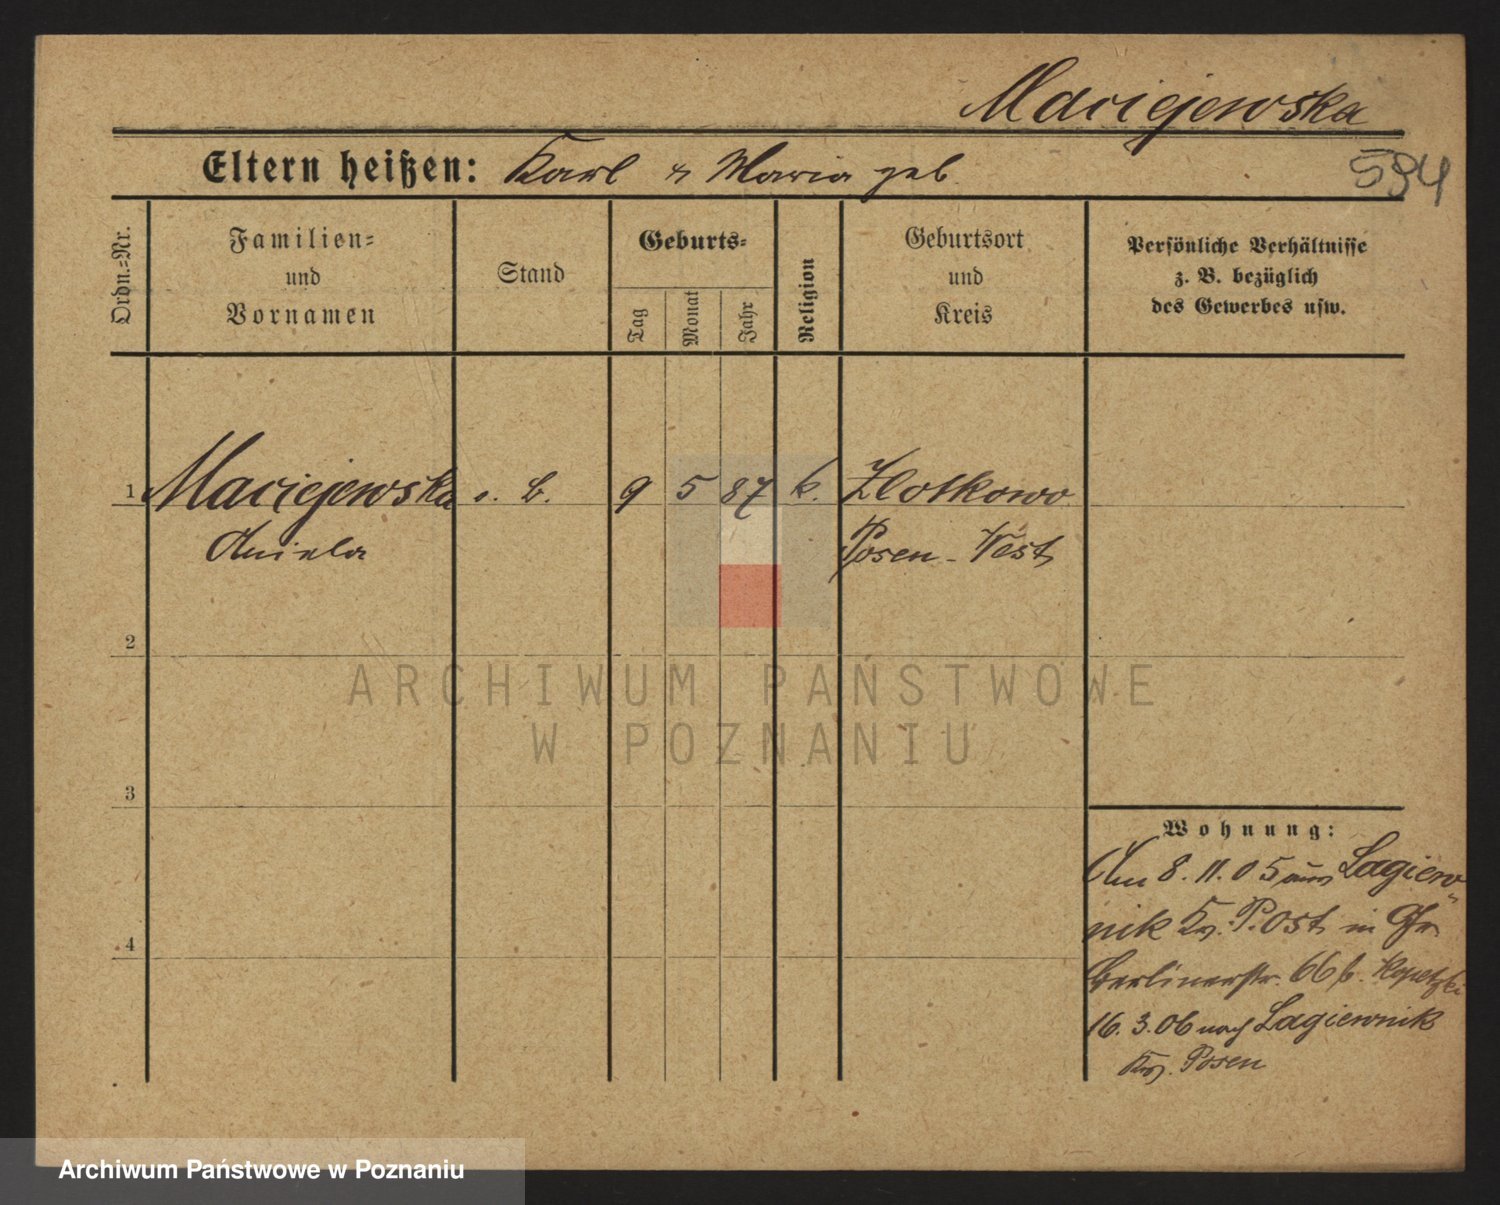 Maciejewska
594
Eltern heißen: Karl u Maria geb
Ordn.-Nr.
Familien-
und
Vornamen
Stand
Geburts-
Tag
Monat
Jahr
Religion
Geburtsort
und
Kreis
Persönliche Verhältnisse
z. B. bezüglich
des Gewerbes usw.
1 Maciejewska s. b. 9 5 87 k. Zlotkowo
Aniela Posen-West
2
3
4
Wohnung:
Am 8.11.05 aus Lagiew-
nik Kr. P. Ost in
Berlinerstr. 66 b. Kopetzki
16.3.06 nach Lagiewnik
Kr. Posen
ARCHIWUM PAŃSTWOWE
W POZNANIU
Archiwum Państwowe w Poznaniu